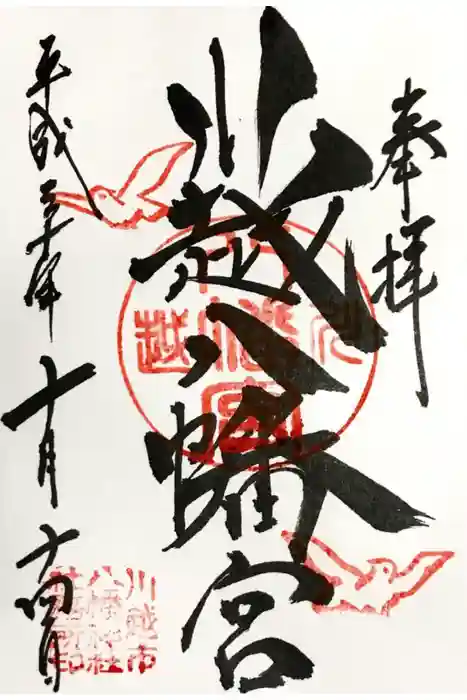 奉拝
川越八幡宮
平成三十年十月十四日
川越
八幡宮
川越市
八幡神社